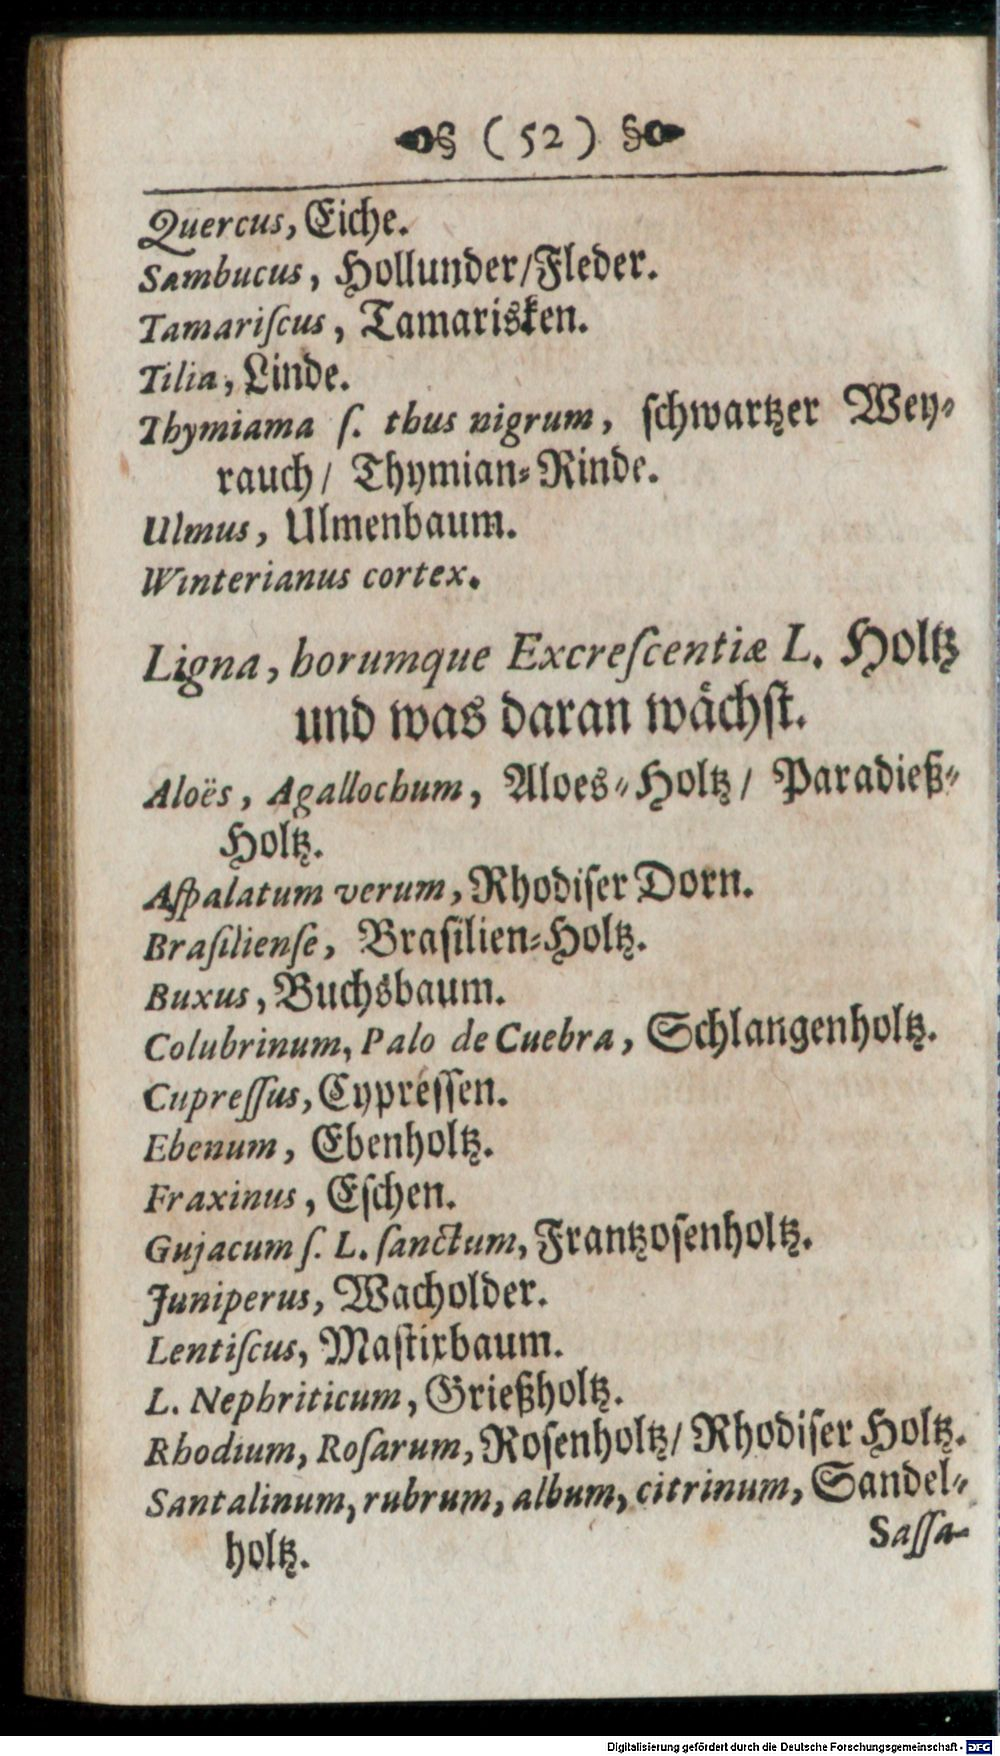 ( 52 )
Quercus, Eiche.
Sambucus, Hollunder/Fleder.
Tamariſcus, Tamarisken.
Tilia, Linde.
Thymiama ſ. thus nigrum, ſchwartzer Wey⸗
rauch/ Thymian⸗Rinde.
Ulmus, Ulmenbaum.
Winterianus cortex.
Ligna, horumque Excreſcentiæ L. Holtz
und was daran wåchſt.
Aloës, Agallochum, Aloes⸗Holtz/ Paradieß⸗
Holtz.
Aſpalatum verum, Rhodiſer Dorn.
Braſilienſe, Braſilien⸗Holtz.
Buxus, Buchsbaum.
Colubrinum, Palo de Cuebra, Schlangenholtz.
Cupreſſus, Cypreſſen.
Ebenum, Ebenholtz.
Fraxinus, Eſchen.
Gujacum ſ. L. ſanctum, Frantzoſenholtz.
Juniperus, Wacholder.
Lentiſcus, Maſtixbaum.
L. Nephriticum, Grießholtz.
Rhodium, Roſarum, Roſenholtz/ Rhodiſer Holtz.
Santalinum, rubrum, album, citrinum, Sandel⸗
holtz.
Saſſa-
Digitalisierung gefördert durch die Deutsche Forschungsgemeinschaft - DFG